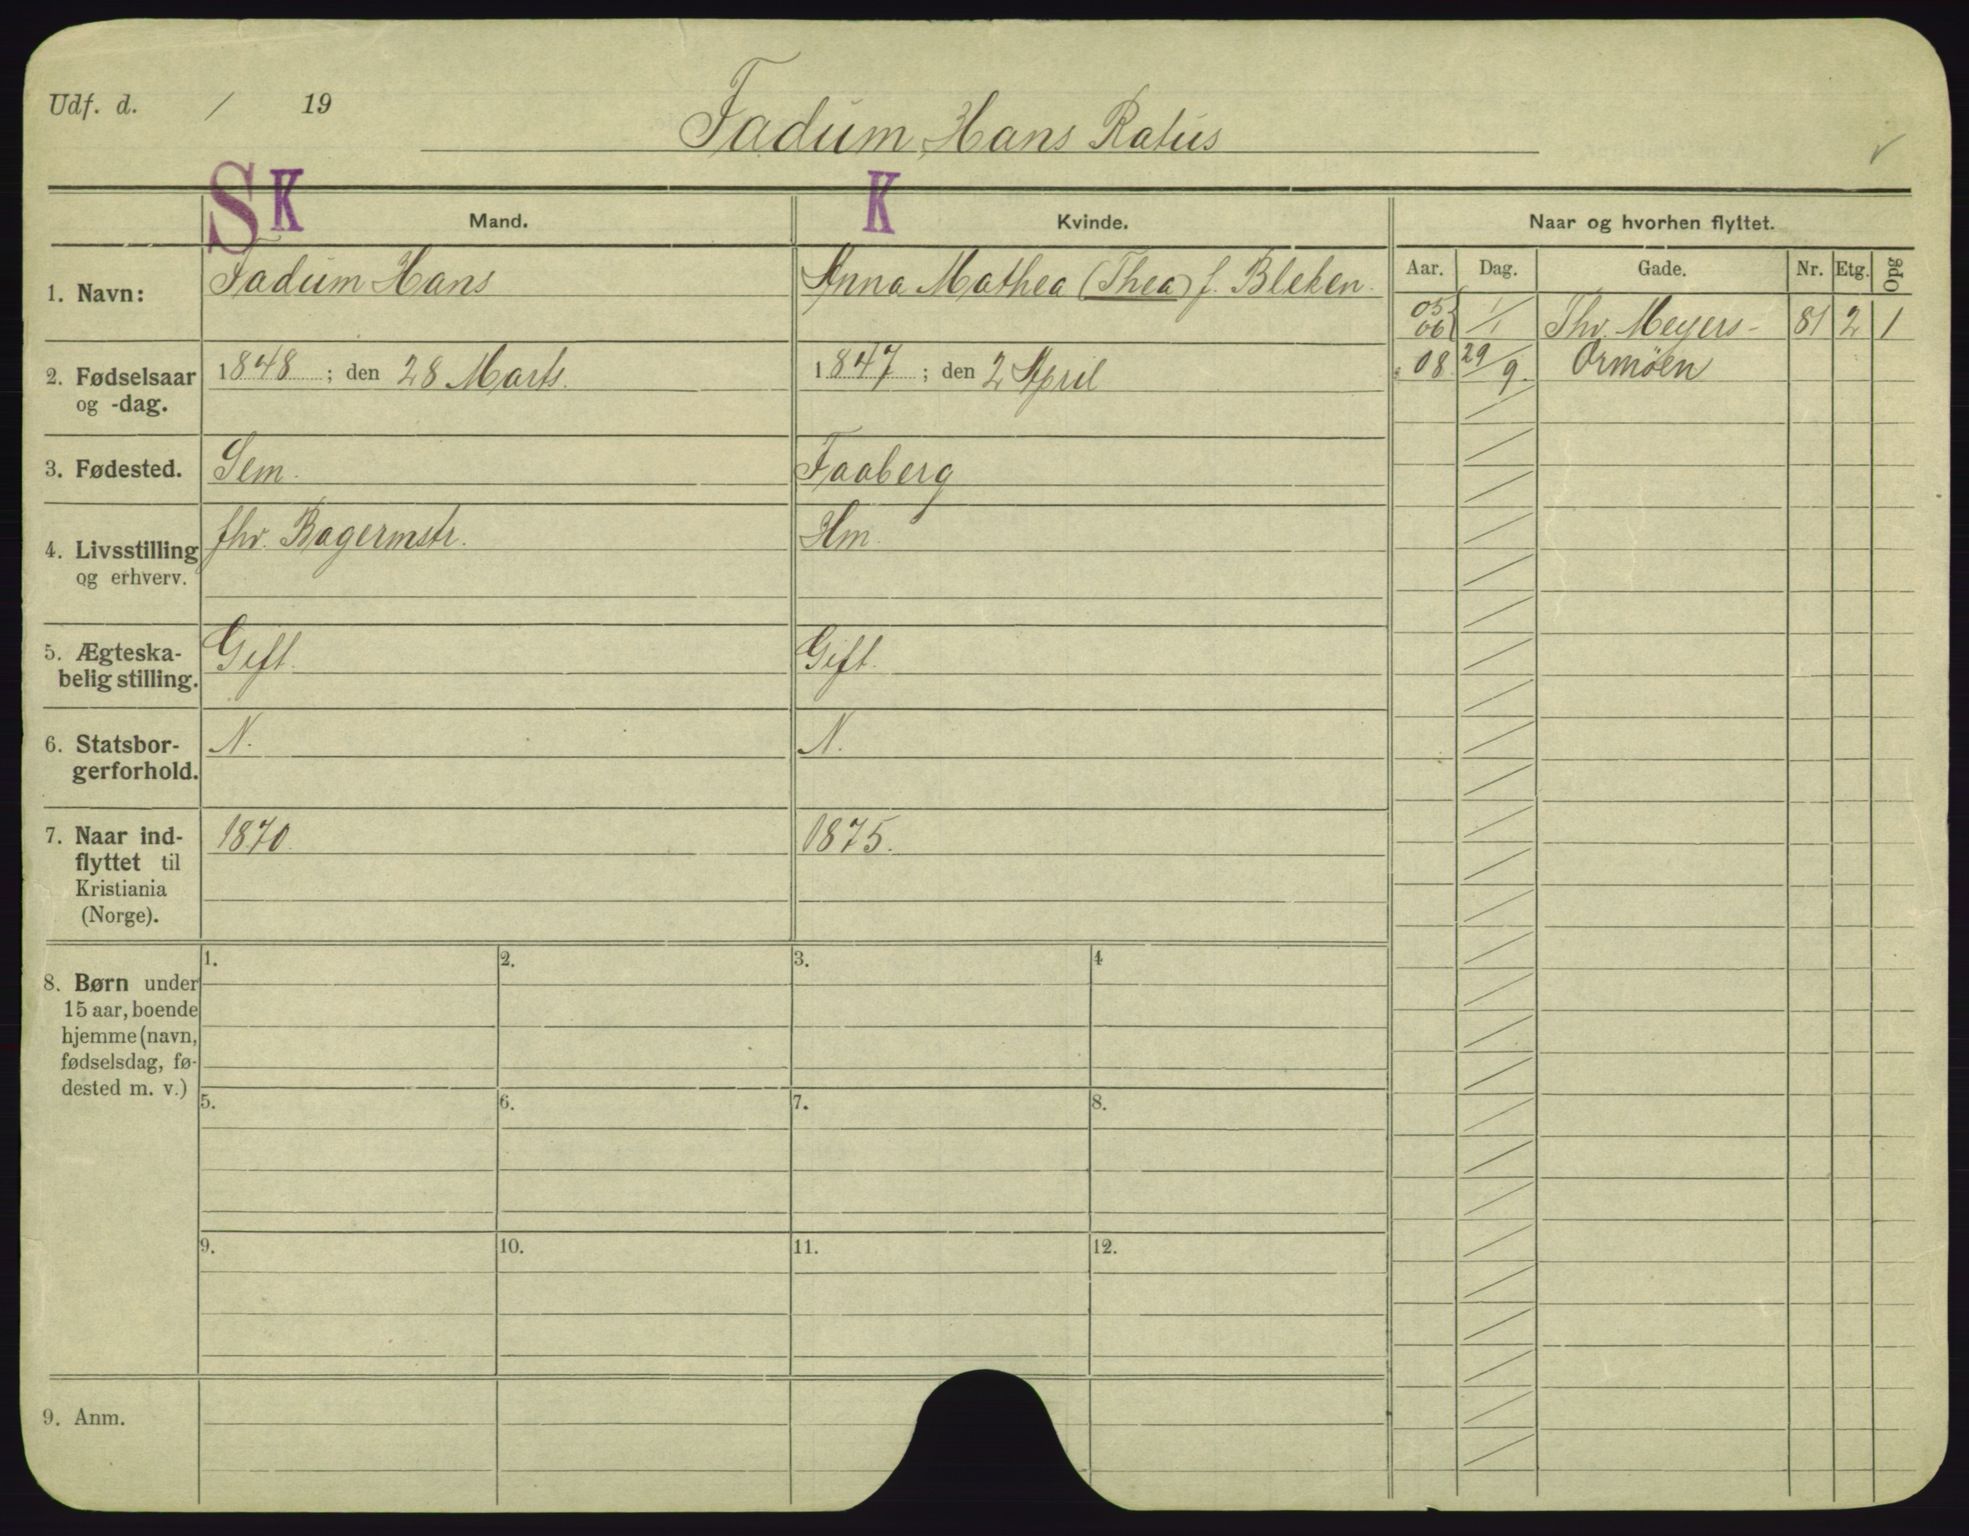 Udf. d. / 19
Fadum Hans Ratus
S K
K
Mand.
Kvinde.
Naar og hvorhen flyttet.
Aar. Dag. Gade. Nr. Etg. Opg
1. Navn:
Fadum Hans
Anna Mathea (Thea) f. Bleken.
05 06 1/1 Thv. Meyers- 81 2 1
08 29/9. Ormøen
2. Fødselsaar
og -dag.
1848 ; den 28 Marts.
1847 ; den 2 April
3. Fødested.
Sem.
Faaberg
4. Livsstilling
og erhverv.
fhv. Bagermstr.
Hm.
5. Ægteska-
belig stilling.
Gift.
Gift.
6. Statsbor-
gerforhold.
N.
N.
7. Naar ind-
flyttet til
Kristiania
(Norge).
1870.
1875.
8. Børn under
15 aar, boende
hjemme (navn,
fødselsdag, fø-
dested m. v.)
1. 2. 3. 4
5. 6. 7. 8.
9. 10. 11. 12.
9. Anm.